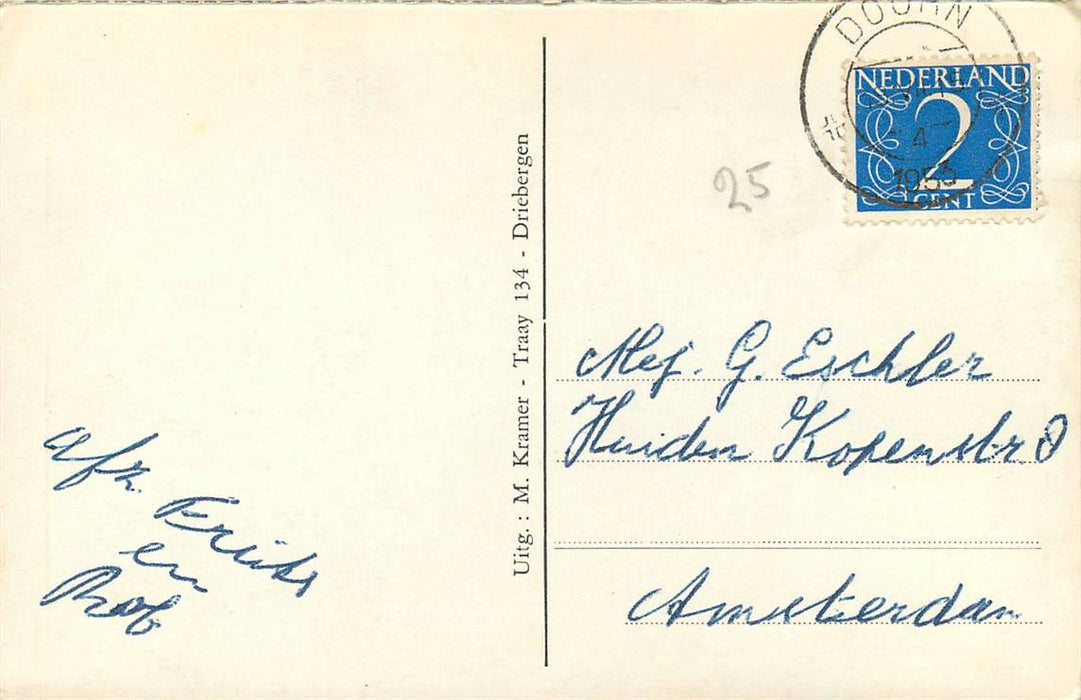 DOORN
4
1953
NEDERLAND
2
CENT
25
Uitg.: M. Kramer - Traay 134 - Driebergen
Mej. G. Eschler
Huiden Kopenstr
Amsterdam
afz.
en
Rob